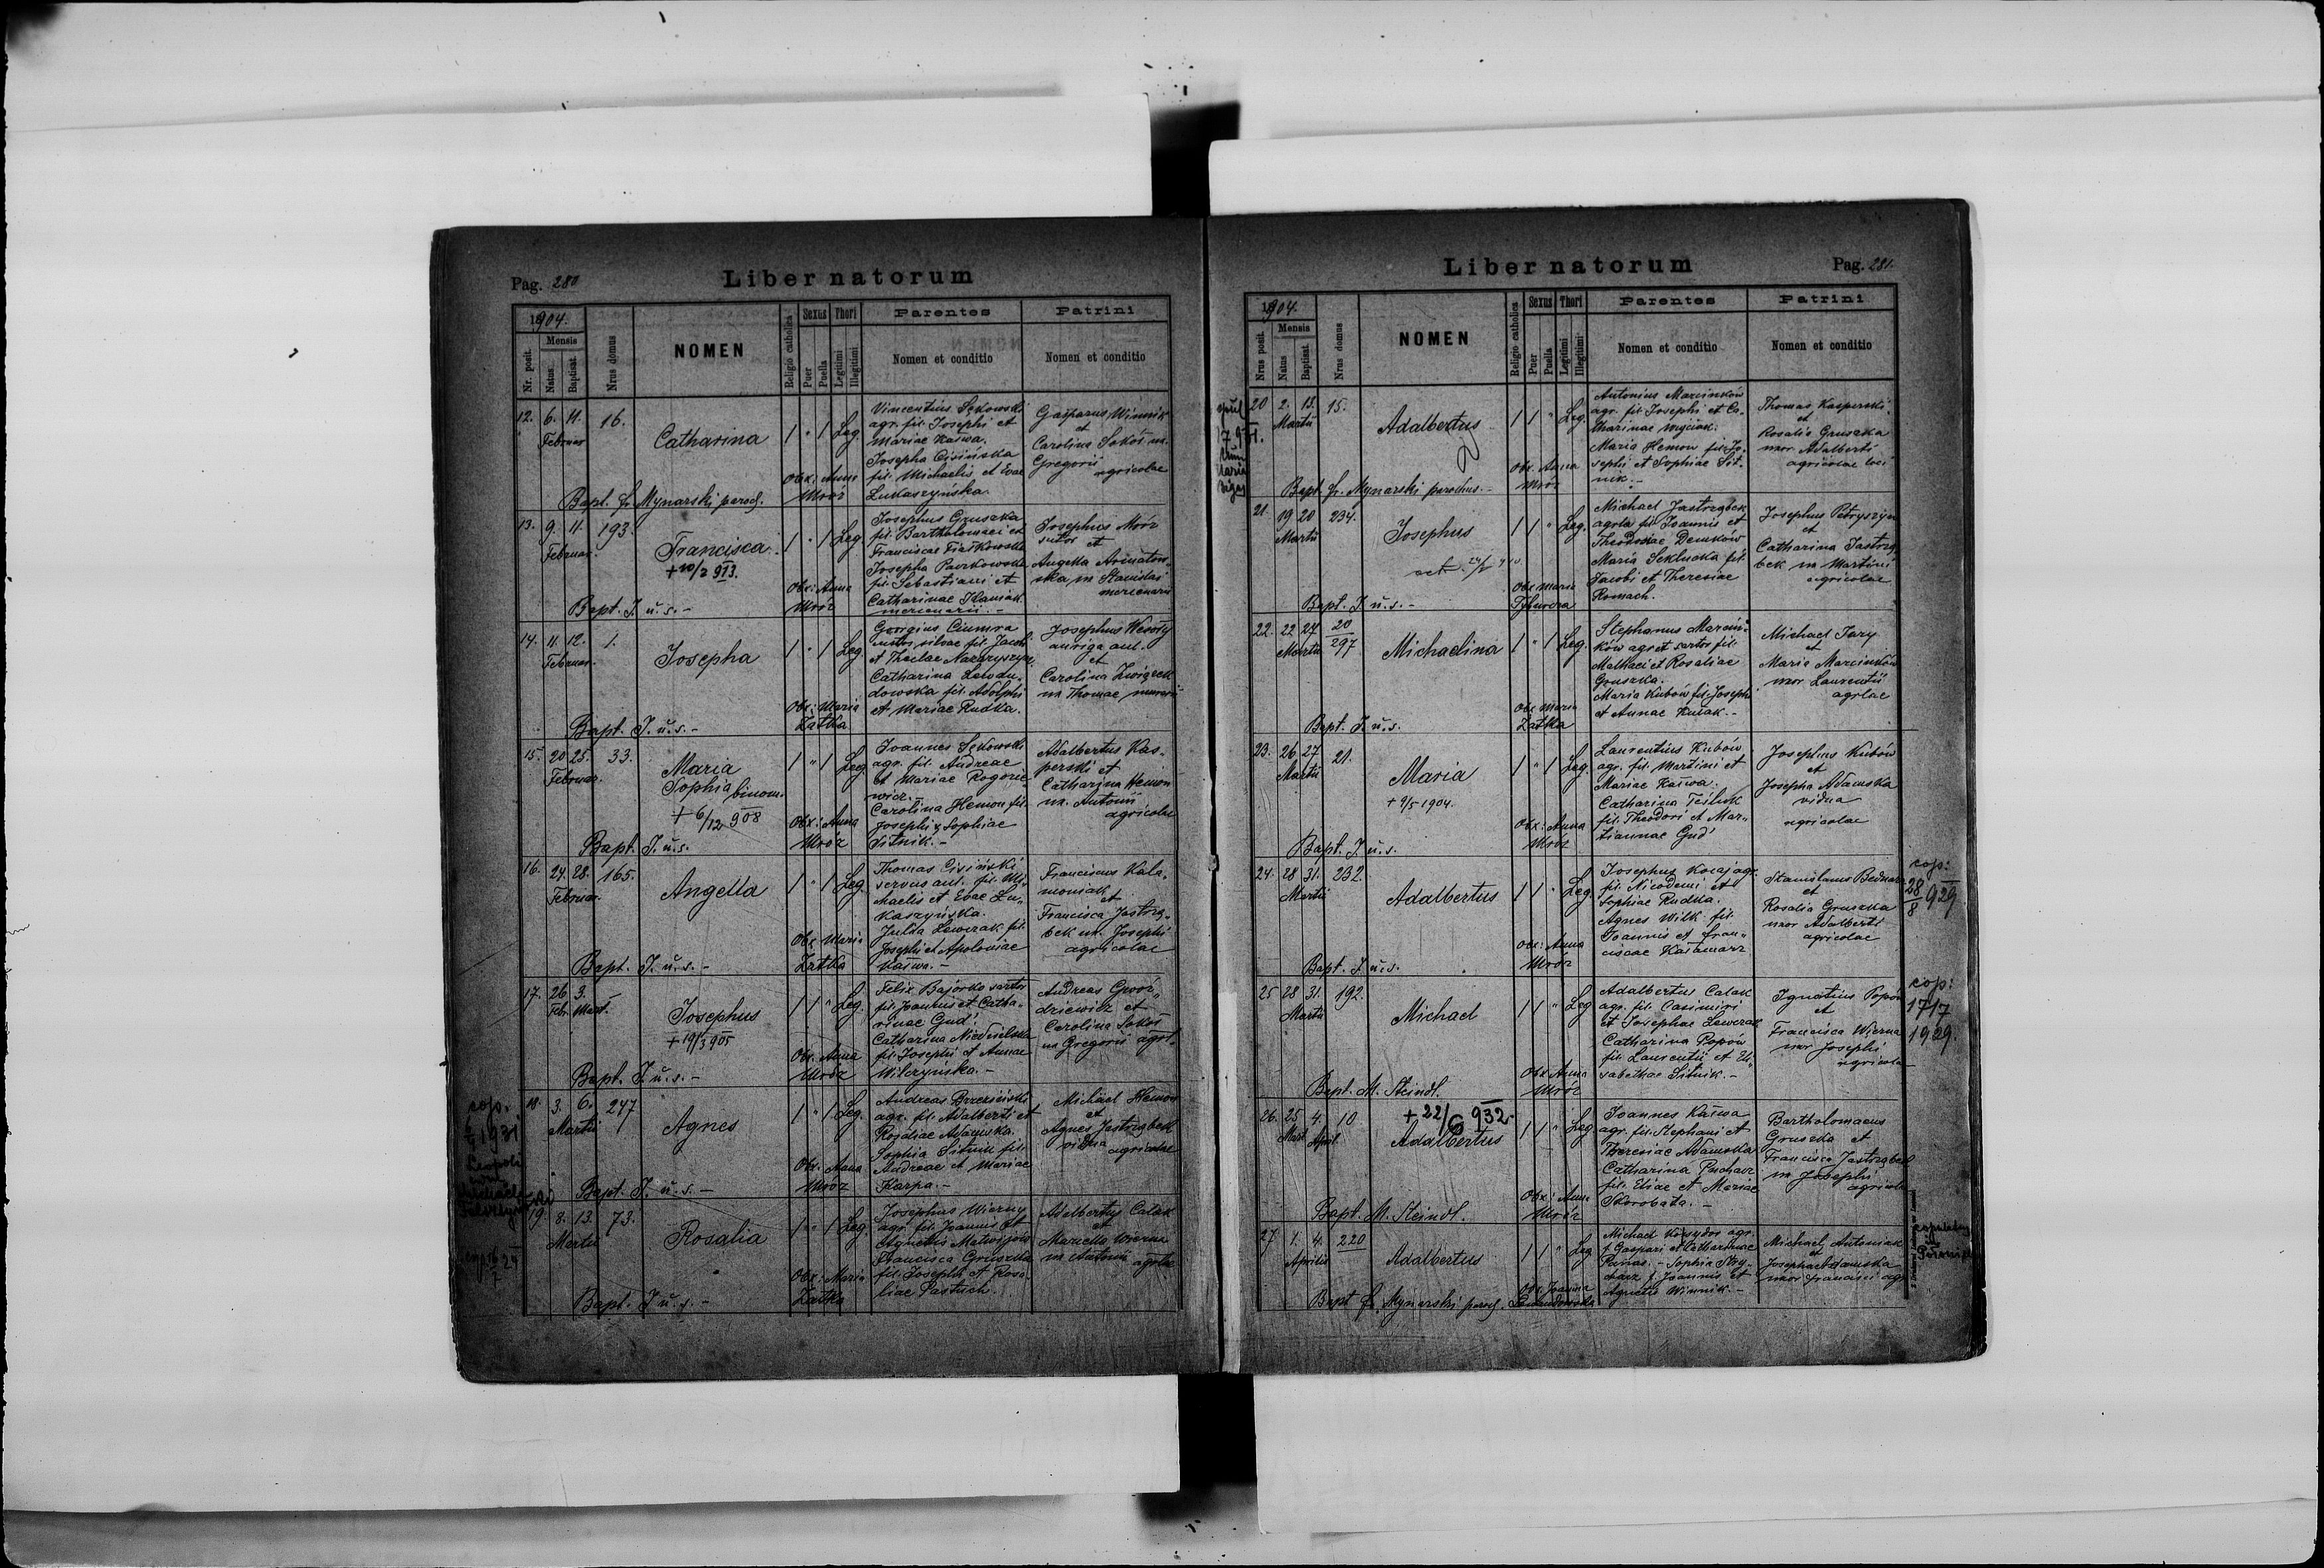 Pag. 280
Liber natorum
1904.
Nr. posit.
Mensis
Natus
Baptisat.
Nrus domus
NOMEN
Religio catholica
Sexus
Puer
Puella
Thori
Legitimi
Illegitimi
Parentes
Nomen et conditio
Patrini
Nomen et conditio
12. 6. 11. 16.
Februar
Catharina
1 " 1 Leg.
Vincentius Sękowski
agr. fil. Josephi et
Mariae Kaswa.
Josepha Cisińska
fil. Michaelis et Evae
Lukaszyńska
Gasparus Winnik
et
Carolina Sokoł ux.
Gregorii
agricolae
Obx: Anna
Mróz
Bapt. fr. Mynarski paroch.
13. 9. 11. 193.
Februar.
Francisca
+ 10/2 913.
1 " 1 Leg
Josephus Gruszka
fil. Bartholomaei et
Franciscae
Josepha
fil. Sebastiani et
Catharinae
mercenarii -
Josephus Mróz
sutor et
Angella
ska ux Stanislai
mercenarii
Obx: Anna
Mróz
Bapt. J. u. s. -
14. 11. 12. 1.
Februar.
Josepha
1 " 1 Leg
Georgius
custos silvae fil. Jacobi
et Theclae
Catharina Lewan-
dowska fil. Adolphi
et Mariae Rudka.
Josephus Wesoły
auriga aul.
et
Carolina Związek
ux Thomae
Obx: Maria
Zatka
Bapt. J. u. s. -
15. 20 25. 33.
Februar.
Maria
Sophia binom.
+ 6/12 908
1 " 1 Leg.
Joannes Sękowski
agr. fil. Andreae
et Mariae Rogozie-
wicz. -
Carolina Hemon fil.
Josephi & Sophiae
Sitnik. -
Adalbertus Kas-
perski et
Catharina Hemon
ux. Antonii
agricolae
Obx: Anna
Mróz
Bapt. J. u. s.
16. 24. 28. 165.
Februar.
Angella
1 " 1 Leg.
Thomas Cisiński
servus aul. fil. Mi-
chaelis et Evae Lu-
kaszyńska.
Julia Lewczak fil.
Josephi et Apoloniae
Kaswa. -
Franciscus Kala-
moniak
et
Francisca Jastrzą-
bek ux. Josephi
agricolae
Obx Maria
Zatka
Bapt. J. u. s. -
17. 26 3.
Febr. Mart.
Josephus
+ 19/3 905
1 1 " Leg.
Felix Bajorko sartor
fil. Joannis et Catha-
rinae Gud.
Catharina Niedzielska
fil. Josephi et Annae
Wilczyńska. -
Andreas Gwoź-
dziewicz et
Carolina Sokoł
ux Gregorii agril.
Obx. Anna
Mróz
Bapt. J. u. s. -
cop.
1931
Leopoli
18. 3. 6. 247
Martii
Agnes
1 " 1 Leg.
Andreas Brzeziński
agr. fil. Adalberti et
Rosaliae Adamska.
Sophia Sitnik fil.
Andreae et Mariae
Karpa. -
Michael Hemon
et
Agnes Jastrząbek
vidua
agricolae
Obx. Anna
Mróz
Bapt. J. u. s. -
19 8. 13. 73.
Martii
Rosalia
1 " 1 Leg.
Josephus Wierny
agr. fil. Joannis et
Agnetis
Francisca Gruszka
fil. Josephi et Rosa-
liae Pastuch.
Adalbertus Calak
et
Marcella Wierna
ux Antonii agrlae
Obx: Maria
Zatka
Bapt. J u. s. -
Liber natorum
Pag. 281.
1904.
Nrus posit.
Mensis
Natus
Baptisat.
Nrus domus
NOMEN
Religio catholica
Sexus
Puer
Puella
Thori
Legitimi
Illegitimi
Parentes
Nomen et conditio
Patrini
Nomen et conditio
20 2. 13. 15.
Martii
Adalbertus
1 1 " Leg.
Antonius Marcinków
agr. fil Josephi et Ca-
tharinae
Maria Hemon fil. Jo-
sephi et Sophiae Sit-
nik. -
Thomas Kasperski
et
Rosalia Gruszka
uxor Adalberti
agricolae loci
Obx. Anna
Mróz
Bapt fr. Mynarski parochus. -
21. 19 20 234.
Martii
Josephus
1 1 " Leg.
Michael Jastrząbek
agrla fil Joannis et
Theodosiae Demków
Maria Seklucka fil.
Jacobi et Theresiae
Romach.
Josephus Petryszyn
et
Catharina Jastrzą-
bek ux Martini
agricolae
Obx Maria
Tyburcza
Bapt. J. u. s. -
22. 22 27 20/297
Martii
Michaelina
1 " 1 Leg.
Stephanus Marcin-
ków agr et sartor fil.
Mathaei et Rosaliae
Gruszka.
Maria Kubów fil. Josephi
et Annae Kusak. -
Michael Jary
et
Maria Marcinków
uxor Laurentii
agrlae
Obx Maria
Zatka
Bapt. J. u. s.
23. 26 27 21.
Martii
Maria
+ 9/5 1904.
1 " 1 Leg.
Laurentius Kubów
agr. fil. Martini et
Mariae Kaswa.
Catharina
fil. Theodori et Mar-
tiannae Gud
Josephus Kubów
et
Josepha Adamska
vidua
agricolae
Obx: Anna
Mróz
Bapt. J. u. s.
24. 28 31. 232.
Martii
Adalbertus
1 1 " Leg.
Josephus agr.
fil. Nicodemi et
Sophiae Rudka.
Agnes Wilk fil.
Joannis et Fran-
ciscae
Stanislaus Bednarz
et
Rosalia Gruszka
uxor Adalberti
agricolae
cop:
28/8 929
Obx: Anna
Mróz
Bapt. J. u. s.
25 28 31. 192.
Martii
Michael
1 1 " Leg
Adalbertus Calak
agr. fil. Casimiri
et Josephae Lewczak
Catharina Popów
fil. Laurentii et Eli-
sabethae Sitnik. -
Ignatius Popów
et
Francisca Wierna
uxor Josephi
agricolae
cop:
1717
1929.
Obx Anna
Mróz
Bapt. M. Steindl.
26. 25 4. 10
Mart. April.
+ 22/6 932.
Adalbertus
1 1 " Leg
Joannes Kaswa
agr. fil. Stephani et
Theresiae Adamska
Catharina Puchacz
fil. Eliae et Mariae
Skorobata. -
Bartholomaeus
Gruszka et
Francisca Jastrząbek
ux Josephi
agricolae
Obx: Anna
Mróz
Bapt. M. Steindl.
27 1. 4. 220
Aprilis
Adalbertus
1 1 " Leg
Michael agr.
f. Gaspari et Catharinae
Panas. - Sophia
f. Joannis et
Agnetis Winnik. -
Michael Antoniak
et
Josepha Adamska
uxor Francisci agr.
Obx. Joanna
Lewandowska
Bapt fr. Mynarski paroch.